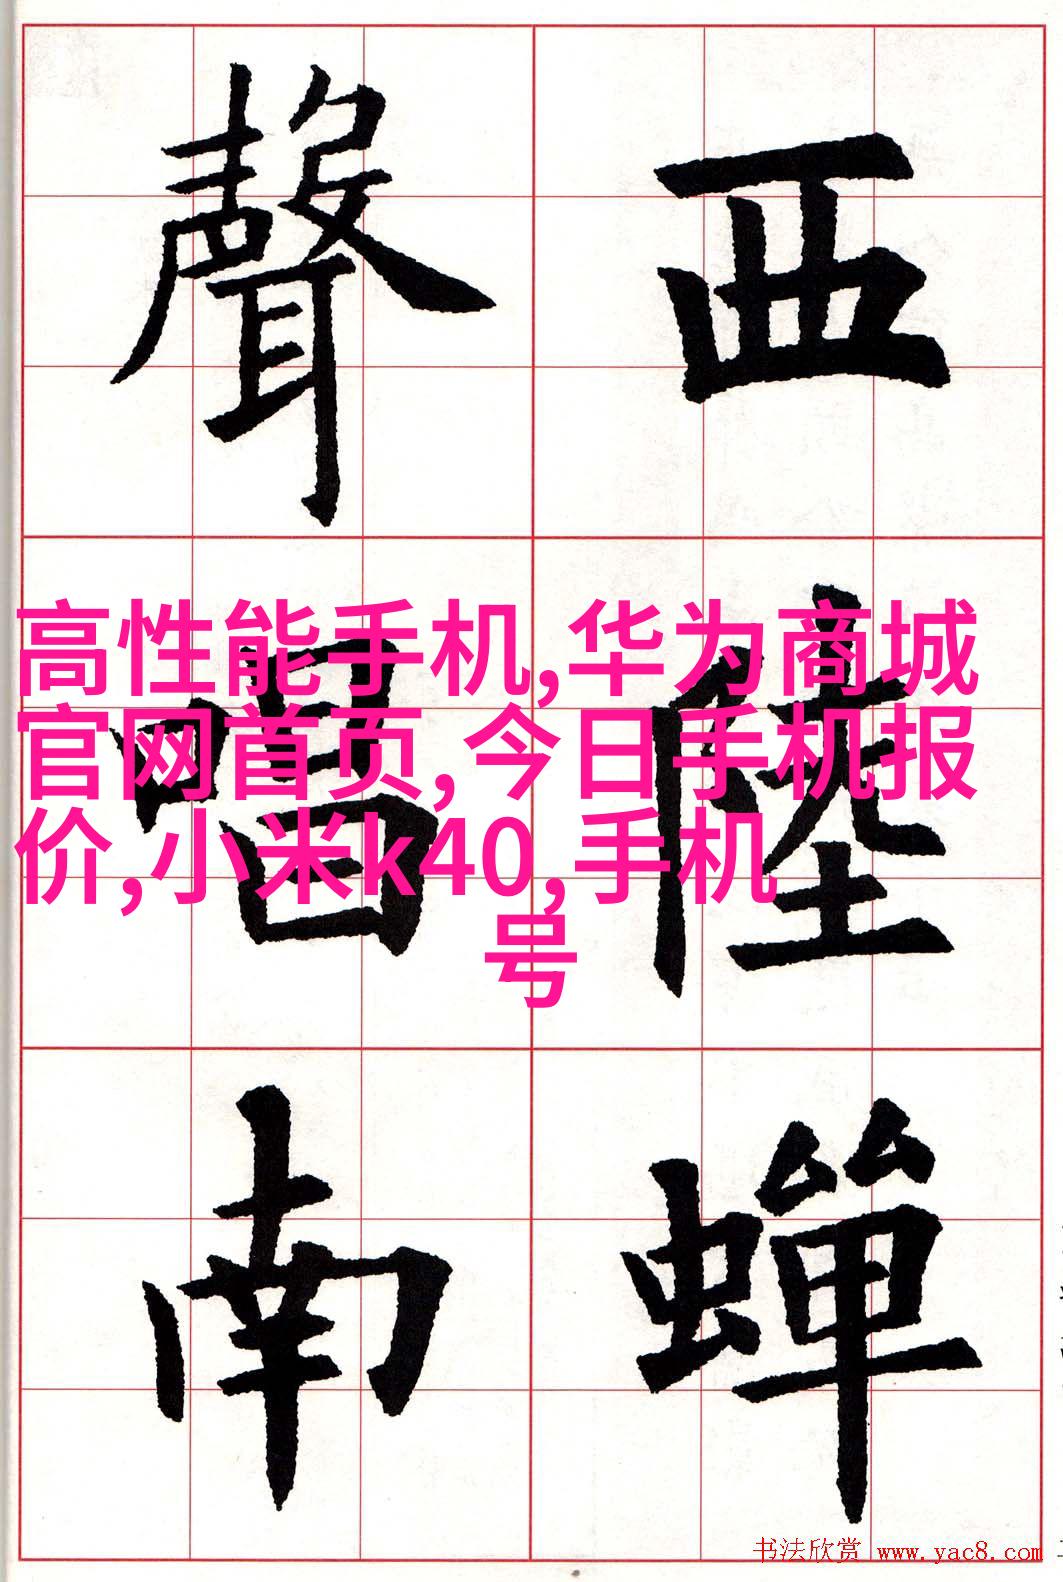 西陸蟬
聲唱南
高性能手机,华为商城
官网首页,今日手机报
价,小米k40,手机
号
书法欣赏 www.yac8.com